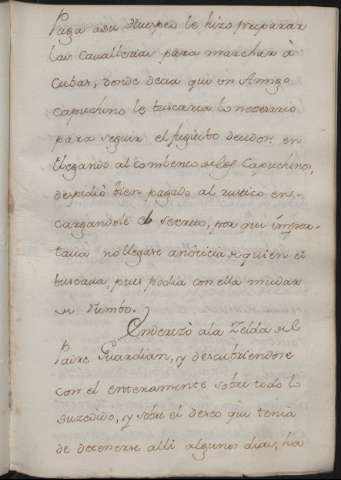 Paga a su Huesped le hizo preparar
las Cavallerias para marchar à
Cubas, donde decia que un Amigo
Capuchino le buscaria lo necesario
para seguir el fugitibo deudor: en
llegando al combento de los Capuchinos,
despidiò bien pagado al rustico en-
cargandole el secreto, por que impor-
tava no llegase a noticia de quien el
buscava, pues podia con ella mudar
de rumbo.
Enderezò a la Zelda del
Padre Guardian, y descubriendose
con el enteramente sobre todo lo
suzedido, y sobre el deseo que tenia
de detenerse alli algunos dias, ha